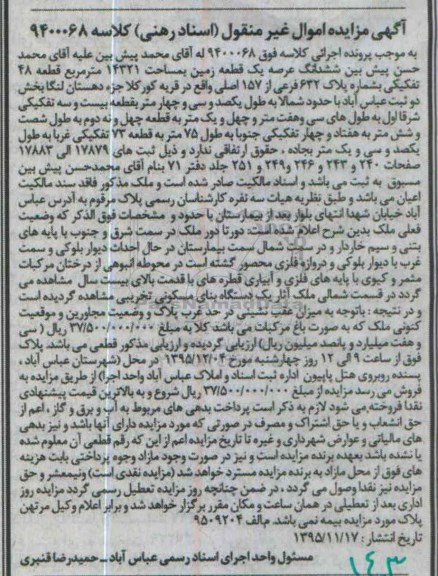 آگهی مزایده اموال غیر منقول (اسناد رهنی) کلاسه ۹۴۰۰۰۶۸
به موجب پرونده اجرائی کلاسه فوق ۹۴۰۰۰۶۸ له آقای محمد پیش بین علیه آقای محمد
حسن پیش بین ششدانگ عرصه یک قطعه زمین بمساحت ۱۴۳۲۱ مترمربع قطعه ۴۸
تفکیکی بشماره پلاک ۶۳۲ فرعی از ۱۵۷ اصلی واقع در قریه کورکلا جزء دهستان لنگا بخش
دو ثبت عباس آباد با حدود شمالا به طول یکصد و سی و چهار متر بقطعه بیست و سه تفکیکی
شرقا اول به طول های سی وهفت متر و چهل و یک متر به قطعه چهل و نه دوم به طول شصت
و شش متر به هفتاد و چهار تفکیکی جنوبا به طول ۷۵ متر به قطعه ۷۳ تفکیکی غربا به طول
یکصد و سی و یک متر بجاده ، حقوق ارتفاقی ندارد و ذیل ثبت های ۱۷۸۷۹ الی ۱۷۸۸۳
صفحات ۲۴۰ و ۲۴۳ و ۲۴۶ و۲۴۹ و ۲۵۱ جلد دفتر ۷۱ بنام آقای محمدحسن پیش بین
مسبوق به ثبت می باشد و اسناد مالکیت صادر شده است و ملک مذکور فاقد سند مالکیت
اعیان می باشد و طبق نظریه هیات سه نفره کارشناسان رسمی پلاک مرقوم به آدرس عباس
آباد خیابان شهدا انتهای بلوار بعد از بیمارستان با حدود و مشخصات فوق الذکر که وضعیت
فعلی ملک بدین شرح اعلام شده است: دورتا دور ملک در سمت شرق و جنوب با پایه های
بتنی و سیم خاردار و در سمت شمال سمت بیمارستان در حال احداث دیوار بلوکی و سمت
غرب با دیوار بلوکی و دروازه فلزی محصور گشته است در محوطه انبوهی از درختان مرکبات
مثمر و کیوی با پایه های فلزی و آبیاری قطره های با قدمت بالای بیست سال مشاهده می
گردد در قسمت شمالی ملک آثار یک دستگاه بنای مسکونی تخریبی مشاهده گردیده است
و در نتیجه : باتوجه به میزان عقب نشینی در حد غرب پلاک و وضعیت مجاورین و موقعیت
کنونی ملک که به صورت باغ مرکبات می باشد کلا به مبلغ ۳۷/۵۰۰/۰۰۰/۰۰۰ ریال ( سی
و هفت میلیارد و پانصد میلیون ریال) ارزیابی گردیده و ارزیابی مذکور قطعی می باشد. پلاک
فوق از ساعت ۹ الی ۱۲ روز چهارشنبه مورخ ۱۳۹۵/۱۲/۰۴ در محل (شهرستان عباس آباد ،
پسنده روبروی هتل پاپیون اداره ثبت اسناد و املاک عباس آباد واحد اجرا) از طریق مزایده به
فروش می رسد مزایده از مبلغ ۳۷/۵۰۰/۰۰۰/۰۰۰ ریال شروع و به بالاترین قیمت پیشنهادی
نقدا فروخته می شود لازم به ذکر است پرداخت بدهی های مربوط به آب و برق و گاز ، اعم از
حق انشعاب و یا حق اشتراک و مصرف در صورتی که مورد مزایده دارای آنها باشد و نیز بدهی
های مالیاتی و عوارض شهرداری و غیره تا تاریخ مزایده اعم از این که رقم قطعی آن معلوم شده
یا نشده باشد بعهده برنده مزایده است و نیز در صورت وجود مازاد وجوه پرداختی بابت هزینه
های فوق از محل مازاد به برنده مزایده مسترد خواهد شد (مزایده نقدی است) ونیمعشر و حق
مزایده نیز نقدا وصول می گردد ، در ضمن چنانچه روز مزایده تعطیل رسمی گردد مزایده روز
اداری بعد از تعطیلی در همان ساعت و مکان مقرر برگزار خواهد شد و برابر اعلام وکیل مرتهن
پلاک مورد مزایده بیمه نمی باشد. م/الف ۹۵۰۹۲۰۴
تاریخ انتشار : ۱۳۹۵/۱۱/۱۷
مسئول واحد اجرای اسناد رسمی عباس آباد ـ حمیدرضا قنبری
۱۴۳